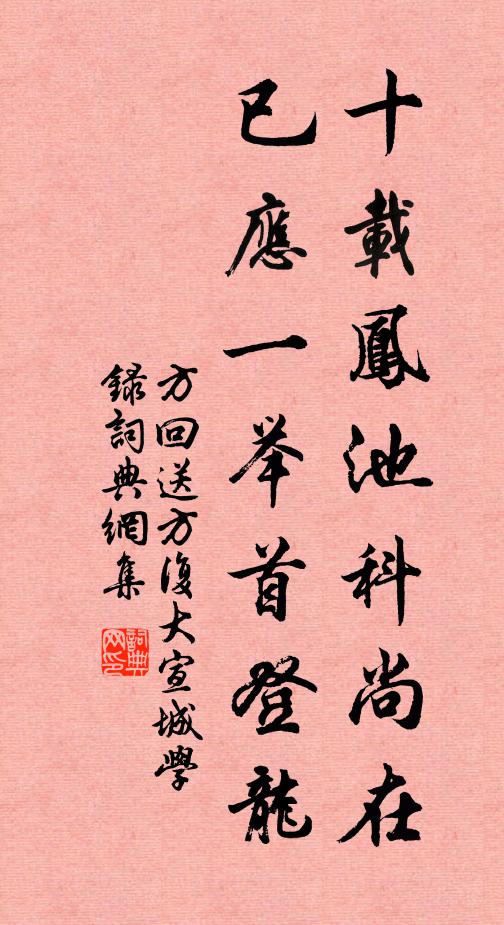 十載鳳池科尚在
已應一举首登龍
方回送方復大宣城學
錄詞典網集
詞典网印